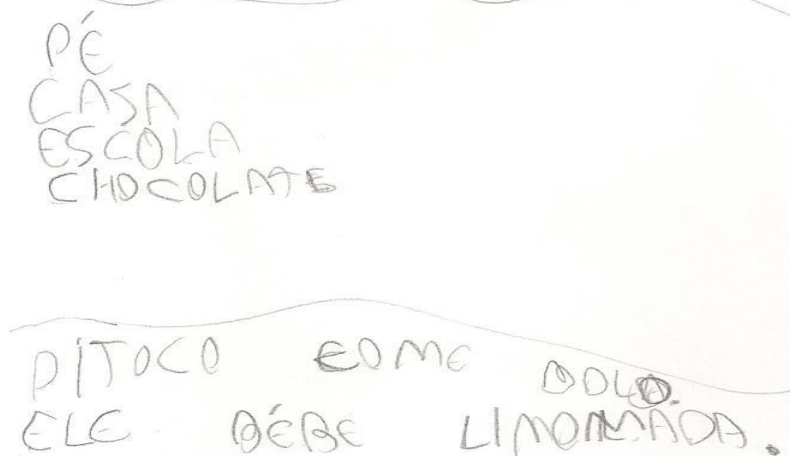 PÉ
CASA
ESCOLA
CHOCOLATE
PITOCO COME BOLO.
ELE BÉBE LIMONMADA.